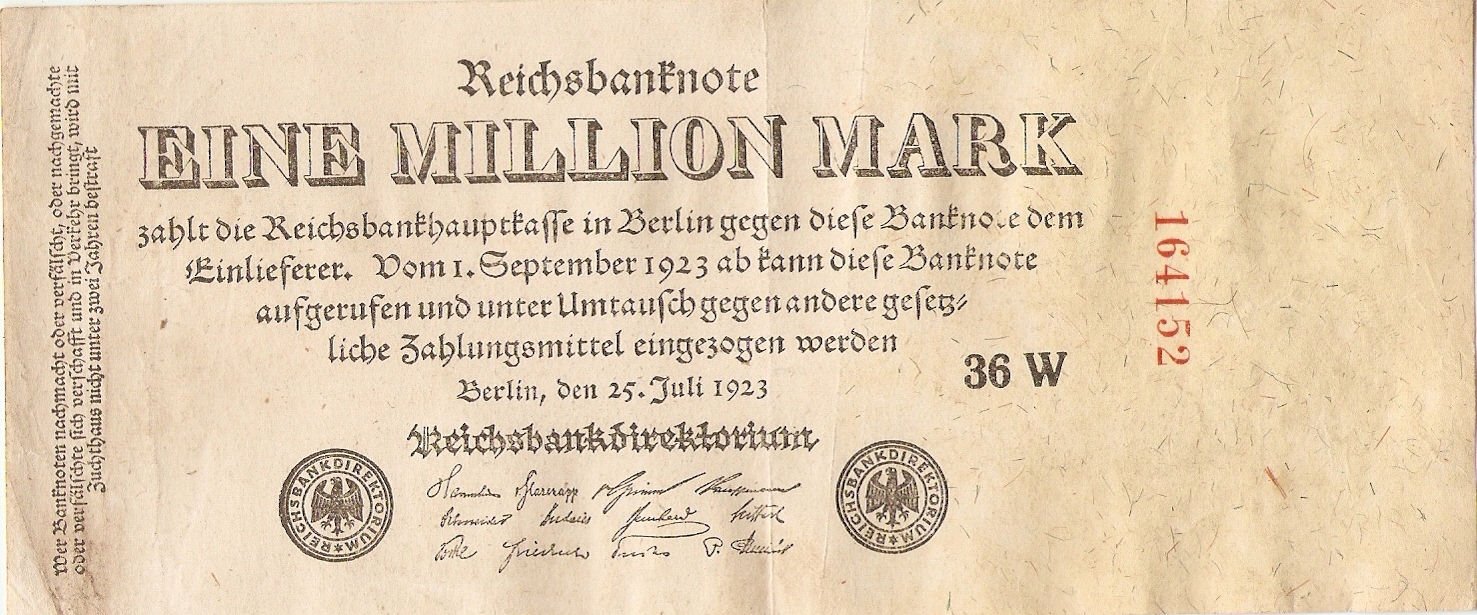 Reichsbanknote
EINE MILLION MARK
zahlt die Reichsbankhauptkasse in Berlin gegen diese Banknote dem
Einlieferer. Vom 1. September 1923 ab kann diese Banknote
aufgerufen und unter Umtausch gegen andere gesetz-
liche Zahlungsmittel eingezogen werden
Berlin, den 25. Juli 1923
36 W
Reichsbankdirektorium
REICHSBANKDIREKTORIUM
REICHSBANKDIREKTORIUM
Wer Banknoten nachmacht oder verfälscht, oder nachgemachte
oder verfälschte sich verschafft und in Verkehr bringt, wird mit
Zuchthaus nicht unter zwei Jahren bestraft
164152